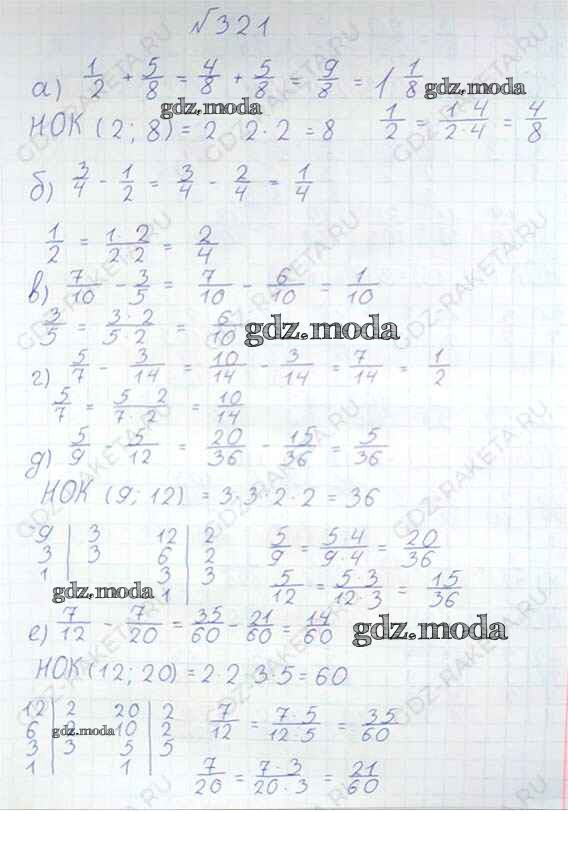 №321
а) 1/2 + 5/8 = 4/8 + 5/8 = 9/8 = 1 1/8 gdz.moda
gdz.moda
НОК (2; 8) = 2 2·2 = 8 1/2 = 1·4/2·4 = 4/8
б) 3/4 - 1/2 = 3/4 - 2/4 = 1/4
1/2 = 1·2/2·2 = 2/4
в) 7/10 - 3/5 = 7/10 - 6/10 = 1/10
3/5 = 3·2/5·2 = 6/10 gdz.moda
г) 5/7 - 3/14 = 10/14 - 3/14 = 7/14 = 1/2
5/7 = 5 2/7·2 = 10/14
д) 5/9 - 5/12 = 20/36 - 15/36 = 5/36
НОК (9; 12) = 3·3·2·2 = 36
9 | 3 12 | 2 5/9 = 5·4/9·4 = 20/36
3 | 3 6 | 2
1 | 3 | 3 5/12 = 5·3/12·3 = 15/36
gdz.moda 1
е) 7/12 - 7/20 = 35/60 - 21/60 = 14/60 gdz.moda
НОК (12; 20) = 2·2 3·5 = 60
12 | 2 20 | 2 7/12 = 7·5/12·5 = 35/60
6 | 2 gdz.moda 10 | 2
3 | 3 5 | 5
1 | 1 | 7/20 = 7·3/20·3 = 21/60
GDZ-RAKETA.RU